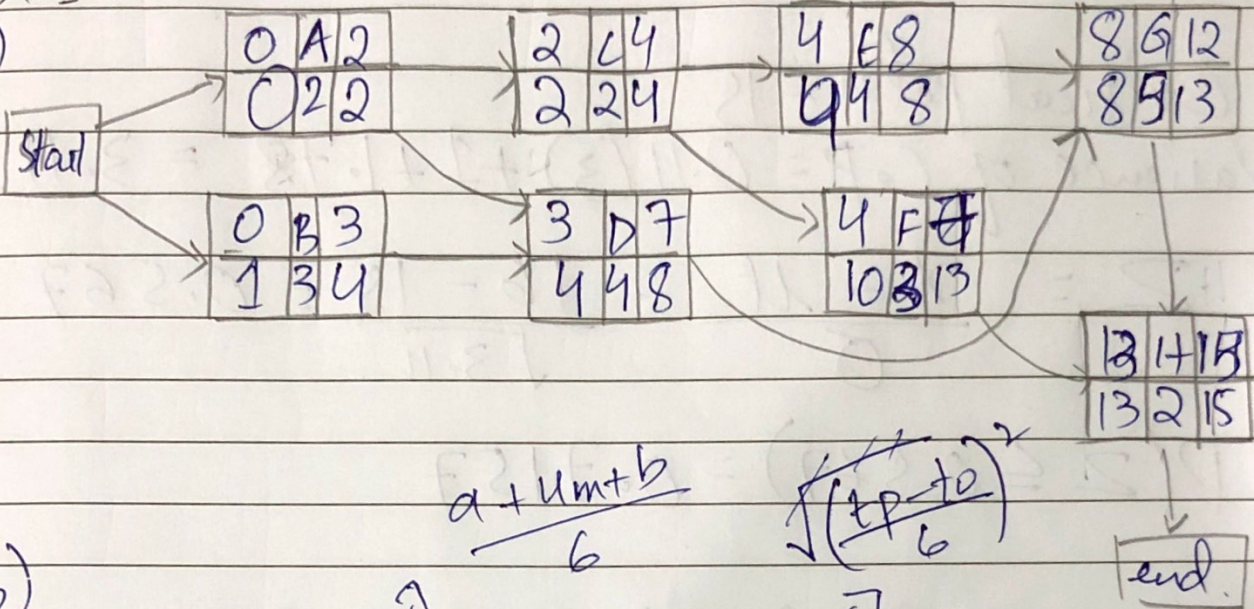 )
0 A 2
0 2 2
2 C 4
2 2 4
4 E 8
4 4 8
8 G 12
8 5 13
Start
0 B 3
1 3 4
3 D 7
4 4 8
4 F
10 3 13
13 H 15
13 2 15
a + 4m + b
6
√((tp - to)²
6
end.
)